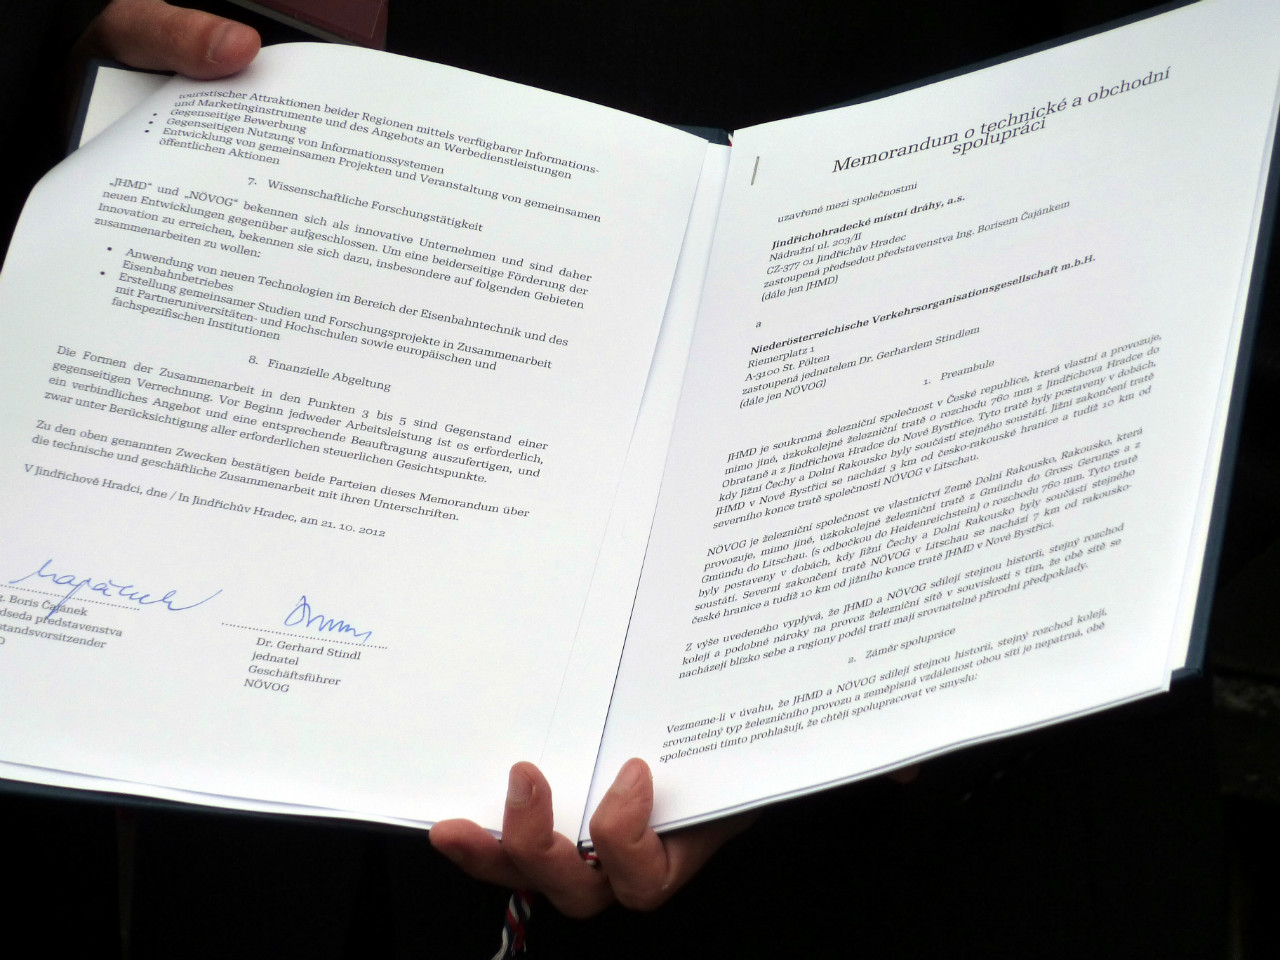 touristischer Attraktionen beider Regionen mittels verfügbarer Informations-
und Marketinginstrumente und des Angebots an Werbedienstleistungen
• Gegenseitige Bewerbung
• Gegenseitigen Nutzung von Informationssystemen
• Entwicklung von gemeinsamen Projekten und Veranstaltung von gemeinsamen
öffentlichen Aktionen
7. Wissenschaftliche Forschungstätigkeit
„JHMD“ und „NÖVOG“ bekennen sich als innovative Unternehmen und sind daher
neuen Entwicklungen gegenüber aufgeschlossen. Um eine beiderseitige Förderung der
Innovation zu erreichen, bekennen sie sich dazu, insbesondere auf folgenden Gebieten
zusammenarbeiten zu wollen:
• Anwendung von neuen Technologien im Bereich der Eisenbahntechnik und des
Eisenbahnbetriebes
• Erstellung gemeinsamer Studien und Forschungsprojekte in Zusammenarbeit
mit Partneruniversitäten- und Hochschulen sowie europäischen und
fachspezifischen Institutionen
8. Finanzielle Abgeltung
Die Formen der Zusammenarbeit in den Punkten 3 bis 5 sind Gegenstand einer
gegenseitigen Verrechnung. Vor Beginn jedweder Arbeitsleistung ist es erforderlich,
ein verbindliches Angebot und eine entsprechende Beauftragung auszufertigen, und
zwar unter Berücksichtigung aller erforderlichen steuerlichen Gesichtspunkte.
Zu den oben genannten Zwecken bestätigen beide Parteien dieses Memorandum über
die technische und geschäftliche Zusammenarbeit mit ihren Unterschriften.
V Jindřichově Hradci, dne / In Jindřichův Hradec, am 21. 10. 2012
g. Boris Čajánek
dseda představenstva
standsvorsitzender
D
Dr. Gerhard Stindl
jednatel
Geschäftsführer
NÖVOG
Memorandum o technické a obchodní
spolupráci
uzavřené mezi společnostmi
Jindřichohradecké místní dráhy, a.s.
Nádražní ul. 203/II
CZ-377 01 Jindřichův Hradec
zastoupená předsedou představenstva Ing. Borisem Čajánkem
(dále jen JHMD)
a
Niederösterreichische Verkehrsorganisationsgesellschaft m.b.H.
Riemerplatz 1
A-3100 St. Pölten
zastoupená jednatelem Dr. Gerhardem Stindlem
(dále jen NÖVOG)
1. Preambule
JHMD je soukromá železniční společnost v České republice, která vlastní a provozuje,
mimo jiné, úzkokolejné železniční tratě o rozchodu 760 mm z Jindřichova Hradce do
Obrataně a z Jindřichova Hradce do Nové Bystřice. Tyto tratě byly postaveny v dobách,
kdy Jižní Čechy a Dolní Rakousko byly součástí stejného soustátí. Jižní zakončení tratě
JHMD v Nové Bystřici se nachází 3 km od česko-rakouské hranice a tudíž 10 km od
severního konce tratě společnosti NÖVOG v Litschau.
NÖVOG je železniční společnost ve vlastnictví Země Dolní Rakousko, Rakousko, která
provozuje, mimo jiné, úzkokolejné železniční tratě z Gmündu do Gross Gerungs a z
Gmündu do Litschau. (s odbočkou do Heidenreichstein) o rozchodu 760 mm. Tyto tratě
byly postaveny v dobách, kdy Jižní Čechy a Dolní Rakousko byly součástí stejného
soustátí. Severní zakončení tratě NÖVOG v Litschau se nachází 7 km od rakousko-
české hranice a tudíž 10 km od jižního konce tratě JHMD v Nové Bystřici.
Z výše uvedeného vyplývá, že JHMD a NÖVOG sdílejí stejnou historii, stejný rozchod
kolejí a podobné nároky na provoz železniční sítě v souvislosti s tím, že obě sítě se
nacházejí blízko sebe a regiony podél tratí mají srovnatelné přírodní předpoklady.
2. Záměr spolupráce
Vezmeme-li v úvahu, že JHMD a NÖVOG sdílejí stejnou historii, stejný rozchod kolejí,
srovnatelný typ železničního provozu a zeměpisná vzdálenost obou sítí je nepatrná, obě
společnosti tímto prohlašují, že chtějí spolupracovat ve smyslu: